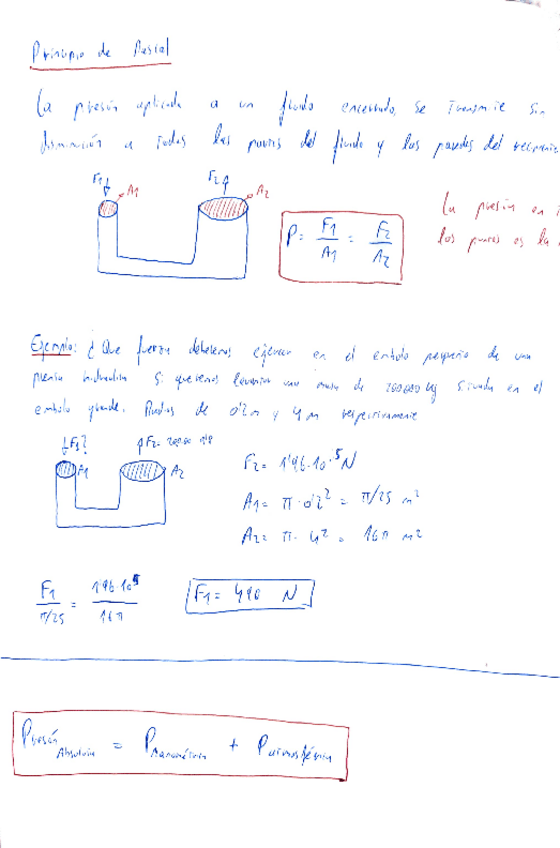 Principio de Pascal
La presión aplicada a un fluido encerrado, se transmite sin
disminución a todos los puntos del fluido y las paredes del recipiente
F1 A1 F2 A2
P = F1/A1 = F2/A2
La presión en
los puntos es la
Ejemplo: ¿Que fuerza debemos ejercer en el embolo pequeño de una
prensa hidraulica si queremos levantar una masa de situada en el
embolo grande. Radios de 0'2m y 4m respectivamente
F1? A1 F2= A2
F2= 1'96·10^5 N
A1= π·0'2² = π/25 m²
A2= π·4² = 16π m²
F1/(π/25) = 1'96·10^5/16π
F1= 490 N
Presión Absoluta = P Manométrica + P atmosférica